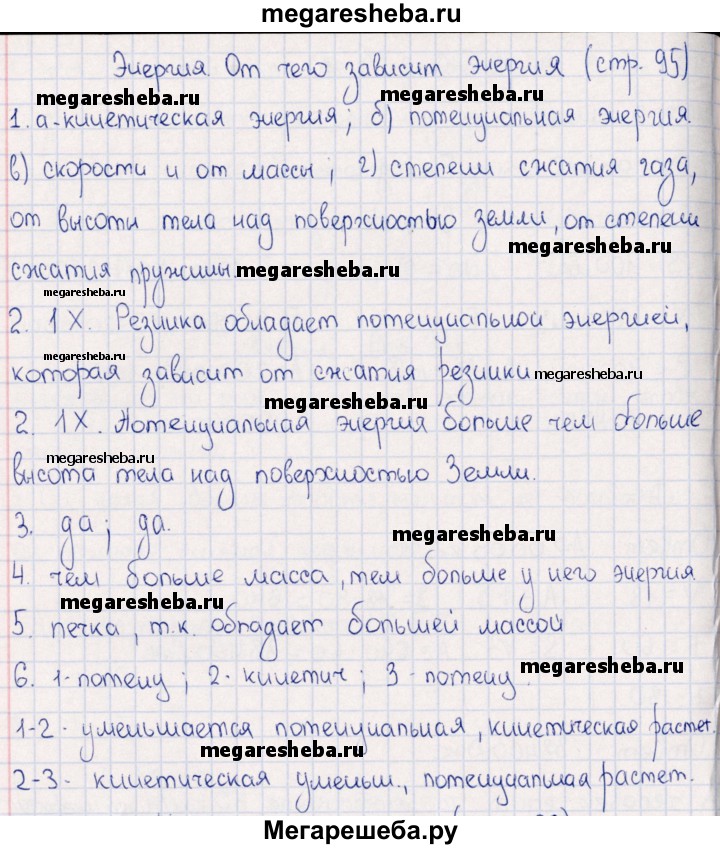 megaresheba.ru
Энергия. От чего зависит энергия (стр. 95)
megaresheba.ru megaresheba.ru
1. а-кинетическая энергия; б) потенциальная энергия.
в) скорости и от массы; г) степени сжатия газа,
от высоты тела над поверхностью земли, от степени
megaresheba.ru
сжатия пружины. megaresheba.ru
megaresheba.ru
2. 1X. Резинка обладает потенциальной энергией,
megaresheba.ru
которая зависит от сжатия резинки megaresheba.ru
megaresheba.ru
2. 1X. Потенциальная энергия больше чем больше
megaresheba.ru
высота тела над поверхностью Земли.
3. да; да.
megaresheba.ru
4. чем больше масса, тем больше у него энергия
megaresheba.ru
5. печка, т.к. обладает большей массой
6. 1-потенц; 2-кинетич; 3-потенц. megaresheba.ru
1-2- уменьшается потенциальная, кинетическая растет.
megaresheba.ru
2-3- кинетическая уменьш., потенциальная растет.
Мегарешеба.ру